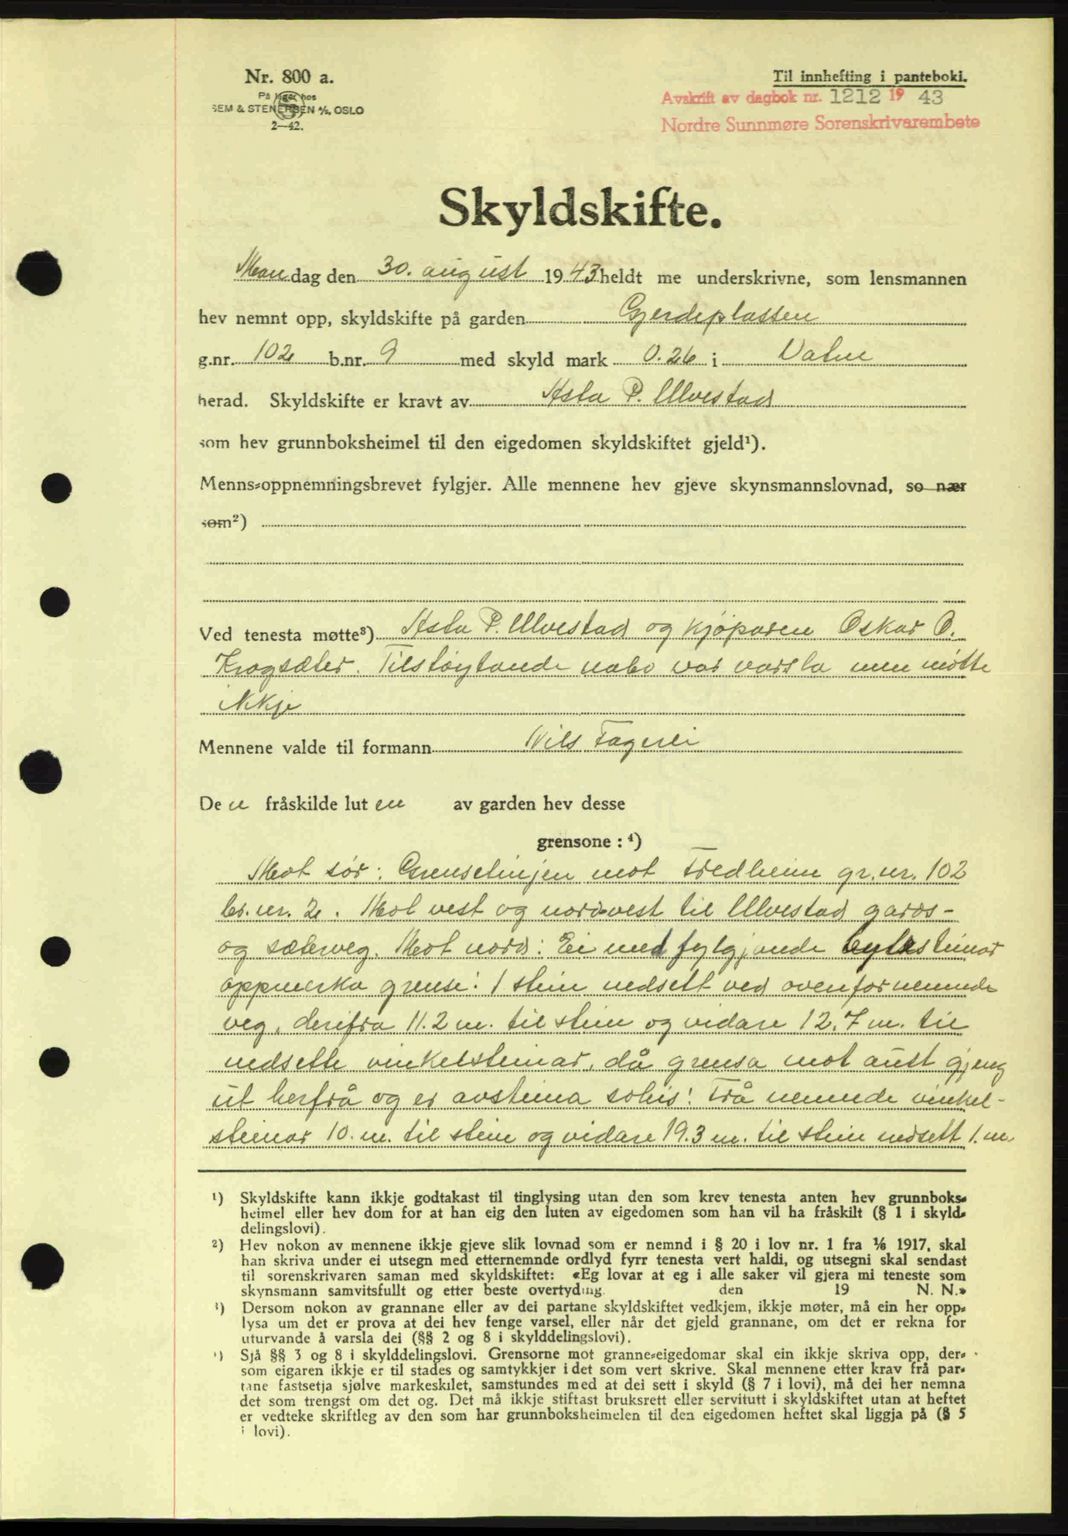 Nr. 800 a.
På lager hos
SEM & STENERSEN A/S, OSLO
2—42.
Til innhefting i panteboki.
Avskrift av dagbok nr. 1212 19 43
Nordre Sunnmøre Sorenskrivarembete
Skyldskifte.
Mandag den 30. august 1943 heldt me underskrivne, som lensmannen
hev nemnt opp, skyldskifte på garden Gjerdeplassen
g.nr. 102 b.nr. 9 med skyld mark 0.26 i Vatne
herad. Skyldskifte er kravt av Asta P. Ulvestad
som hev grunnboksheimel til den eigedomen skyldskiftet gjeld¹).
Menns-oppnemningsbrevet fylgjer. Alle mennene hev gjeve skynsmannslovnad, so nær
som²)
Ved tenesta møtte³) Asta P. Ulvestad og kjøparen Oskar O.
Krogsæter. Tilstøytande nabo var varsla men møtte
ikkje
Mennene valde til formann Nils Fagerli
Den fråskilde luten av garden hev desse
grensone : ⁴)
Mot sør: Grenselinjen mot Fredheim gr.nr. 102
br.nr. 2. Mot vest og nordvest til Ulvestad gards-
og sæterveg. Mot nord: Ei med fylgjande bytesteinar
oppmerka grense: 1 stein nedsett ved ovenfornemnde
veg, derifra 11.2 m. til stein og vidare 12.7 m. til
nedsette vinkelsteinar, då grensa mot aust gjeng
ut herfrå og er avsteina soleis: Frå nemnde vinkel-
steinar 10. m. til stein og vidare 19.3 m. til stein nedsett 1. m
¹) Skyldskifte kann ikkje godtakast til tinglysing utan den som krev tenesta anten hev grunnboks-
heimel eller hev dom for at han eig den luten av eigedomen som han vil ha fråskilt (§ 1 i skyld-
delingslovi).
²) Hev nokon av mennene ikkje gjeve slik lovnad som er nemnd i § 20 i lov nr. 1 fra ⅙ 1917, skal
han skriva under ei utsegn med etternemnde ordlyd fyrr tenesta vert haldi, og utsegni skal sendast
til sorenskrivaren saman med skyldskiftet: «Eg lovar at eg i alle saker vil gjera mi teneste som
skynsmann samvitsfullt og etter beste overtyding. den 19 N. N.»
³) Dersom nokon av grannane eller av dei partane skyldskiftet vedkjem, ikkje møter, må ein her opp-
lysa um det er prova at dei hev fenge varsel, eller når det gjeld grannane, om det er rekna for
uturvande å varsla dei (§§ 2 og 8 i skylddelingslovi).
⁴) Sjå §§ 3 og 8 i skylddelingslovi. Grensorne mot granne-eigedomar skal ein ikkje skriva opp, der-
som eigaren ikkje er til stades og samtykkjer i det som vert skrive. Skal mennene etter krav frå par-
tane fastsetja sjølve markeskilet, samstundes med at dei sett i skyld (§ 7 i lovi), må dei her nemna
det som trengst om det og. Det må ikkje stiftast bruksrett eller servitutt i skyldskiftet utan at heftet
er vedteke skriftleg av den som har grunnboksheimelen til den eigedomen heftet skal liggja på (§ 5
i lovi).